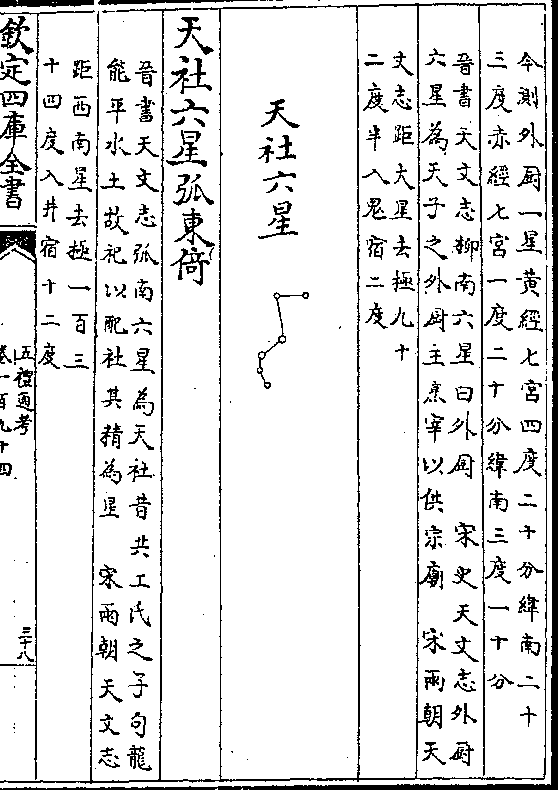 今則外厨一星黃經七宮四度二十分緯南二十
三度赤經七宮一度二十分緯南三度一十分
晉書天文志柳南六星曰外厨　宋史天文志外厨
六星為天子之外厨主烹宰以供宗廟　宋兩朝天
文志距大星去極九十
二度半入鬼宿二度
天社六星
天社六星弧東倚
晉書天文志弧南六星為天社昔共工氏之子句龍
能平水土故祀以配社其精為星　宋兩朝天文志
距西南星去極一百三
十四度入井宿十二度
欽定四庫全書
五禮通考
卷一百九十四
三十八